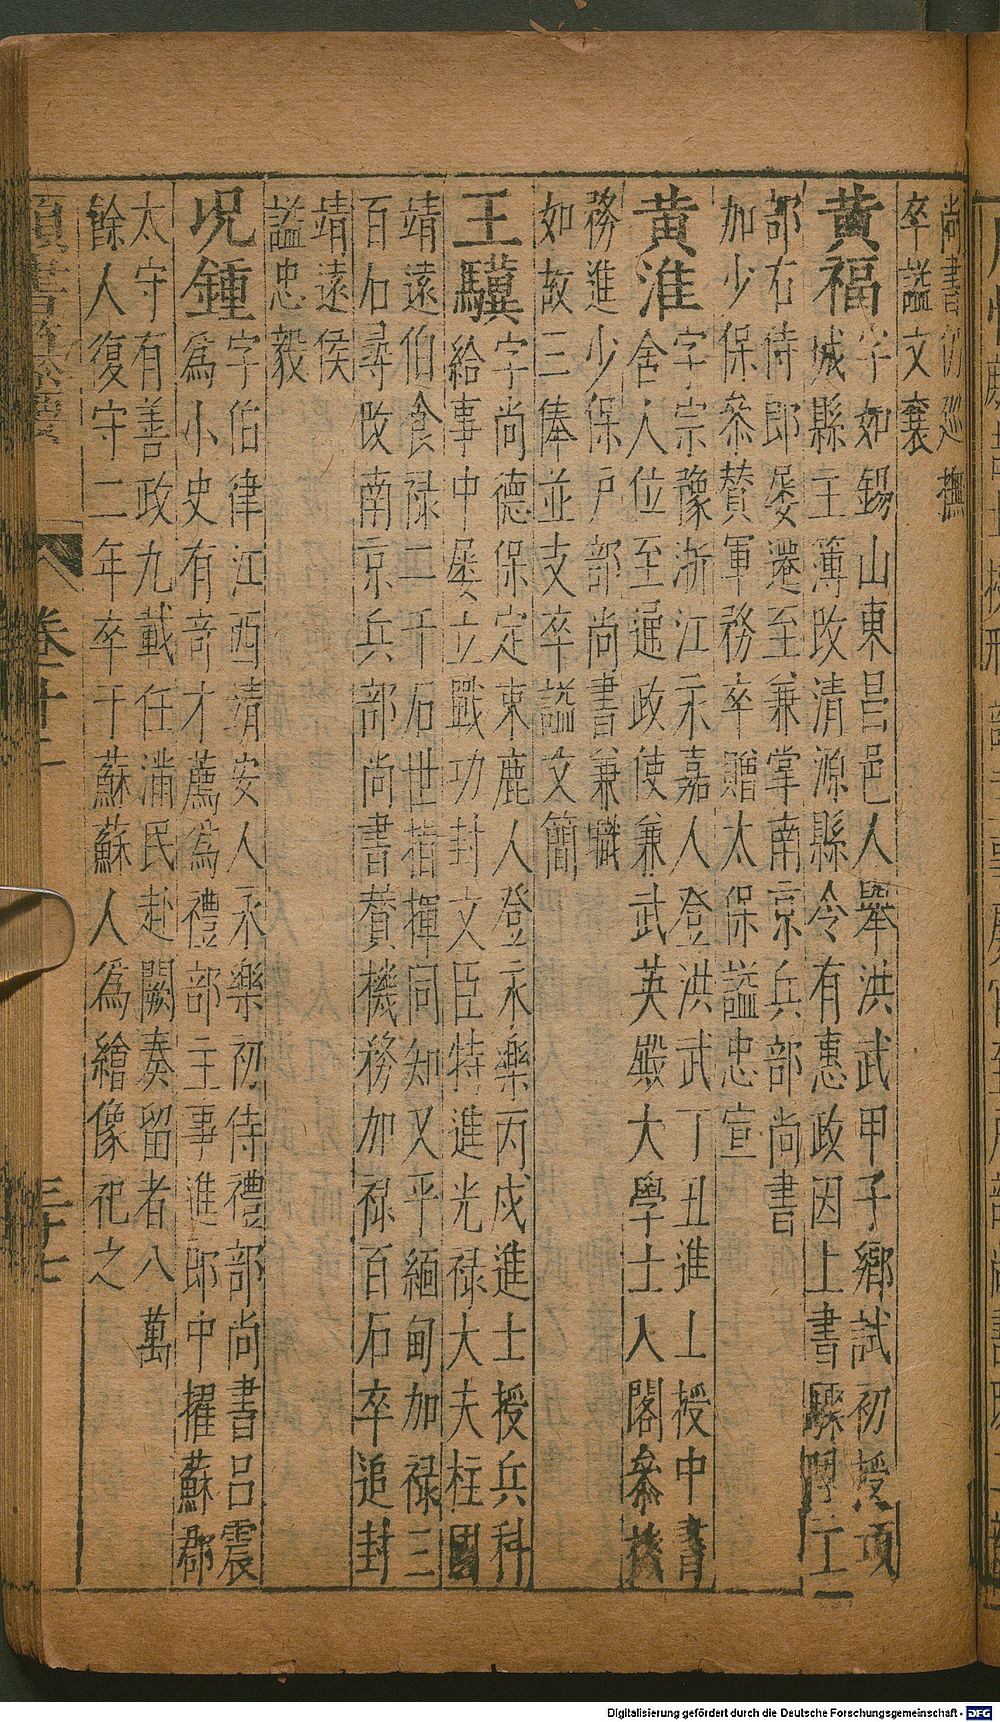 尚書仍巡撫
卒謚文襄
黃福
字如錫山東昌邑人舉洪武甲子鄉試初授項
城縣主簿改清源縣令有惠政因上書驟陞工
部右侍郎屡遷至兼掌南京兵部尚書
加少保叅賛軍務卒贈太保謚忠宣
黃淮
字宗豫浙江永嘉人登洪武丁丑進士授中書
舍人位至通政使兼武英殿大學士入閣叅機
務進少保戶部尚書兼職
如故三俸並支卒謚文簡
王驥
字尚德保定束鹿人登永樂丙戌進士授兵科
給事中屡立戰功封文臣特進光禄大夫柱國
靖遠伯食禄二千石世指揮同知又平緬甸加禄三
百石尋改南京兵部尚書賛機務加禄百石卒追封
靖遠侯
謚忠毅
况鍾
字伯律江西靖安人永樂初侍禮部尚書吕震
為小史有奇才薦為禮部主事進郎中擢蘇郡
太守有善政九載任滿民赴闕奏留者八萬
餘人復守二年卒于蘇蘇人為繪像祀之
類書
卷二十二
三十七
Digitalisierung gefördert durch die Deutsche Forschungsgemeinschaft - DFG